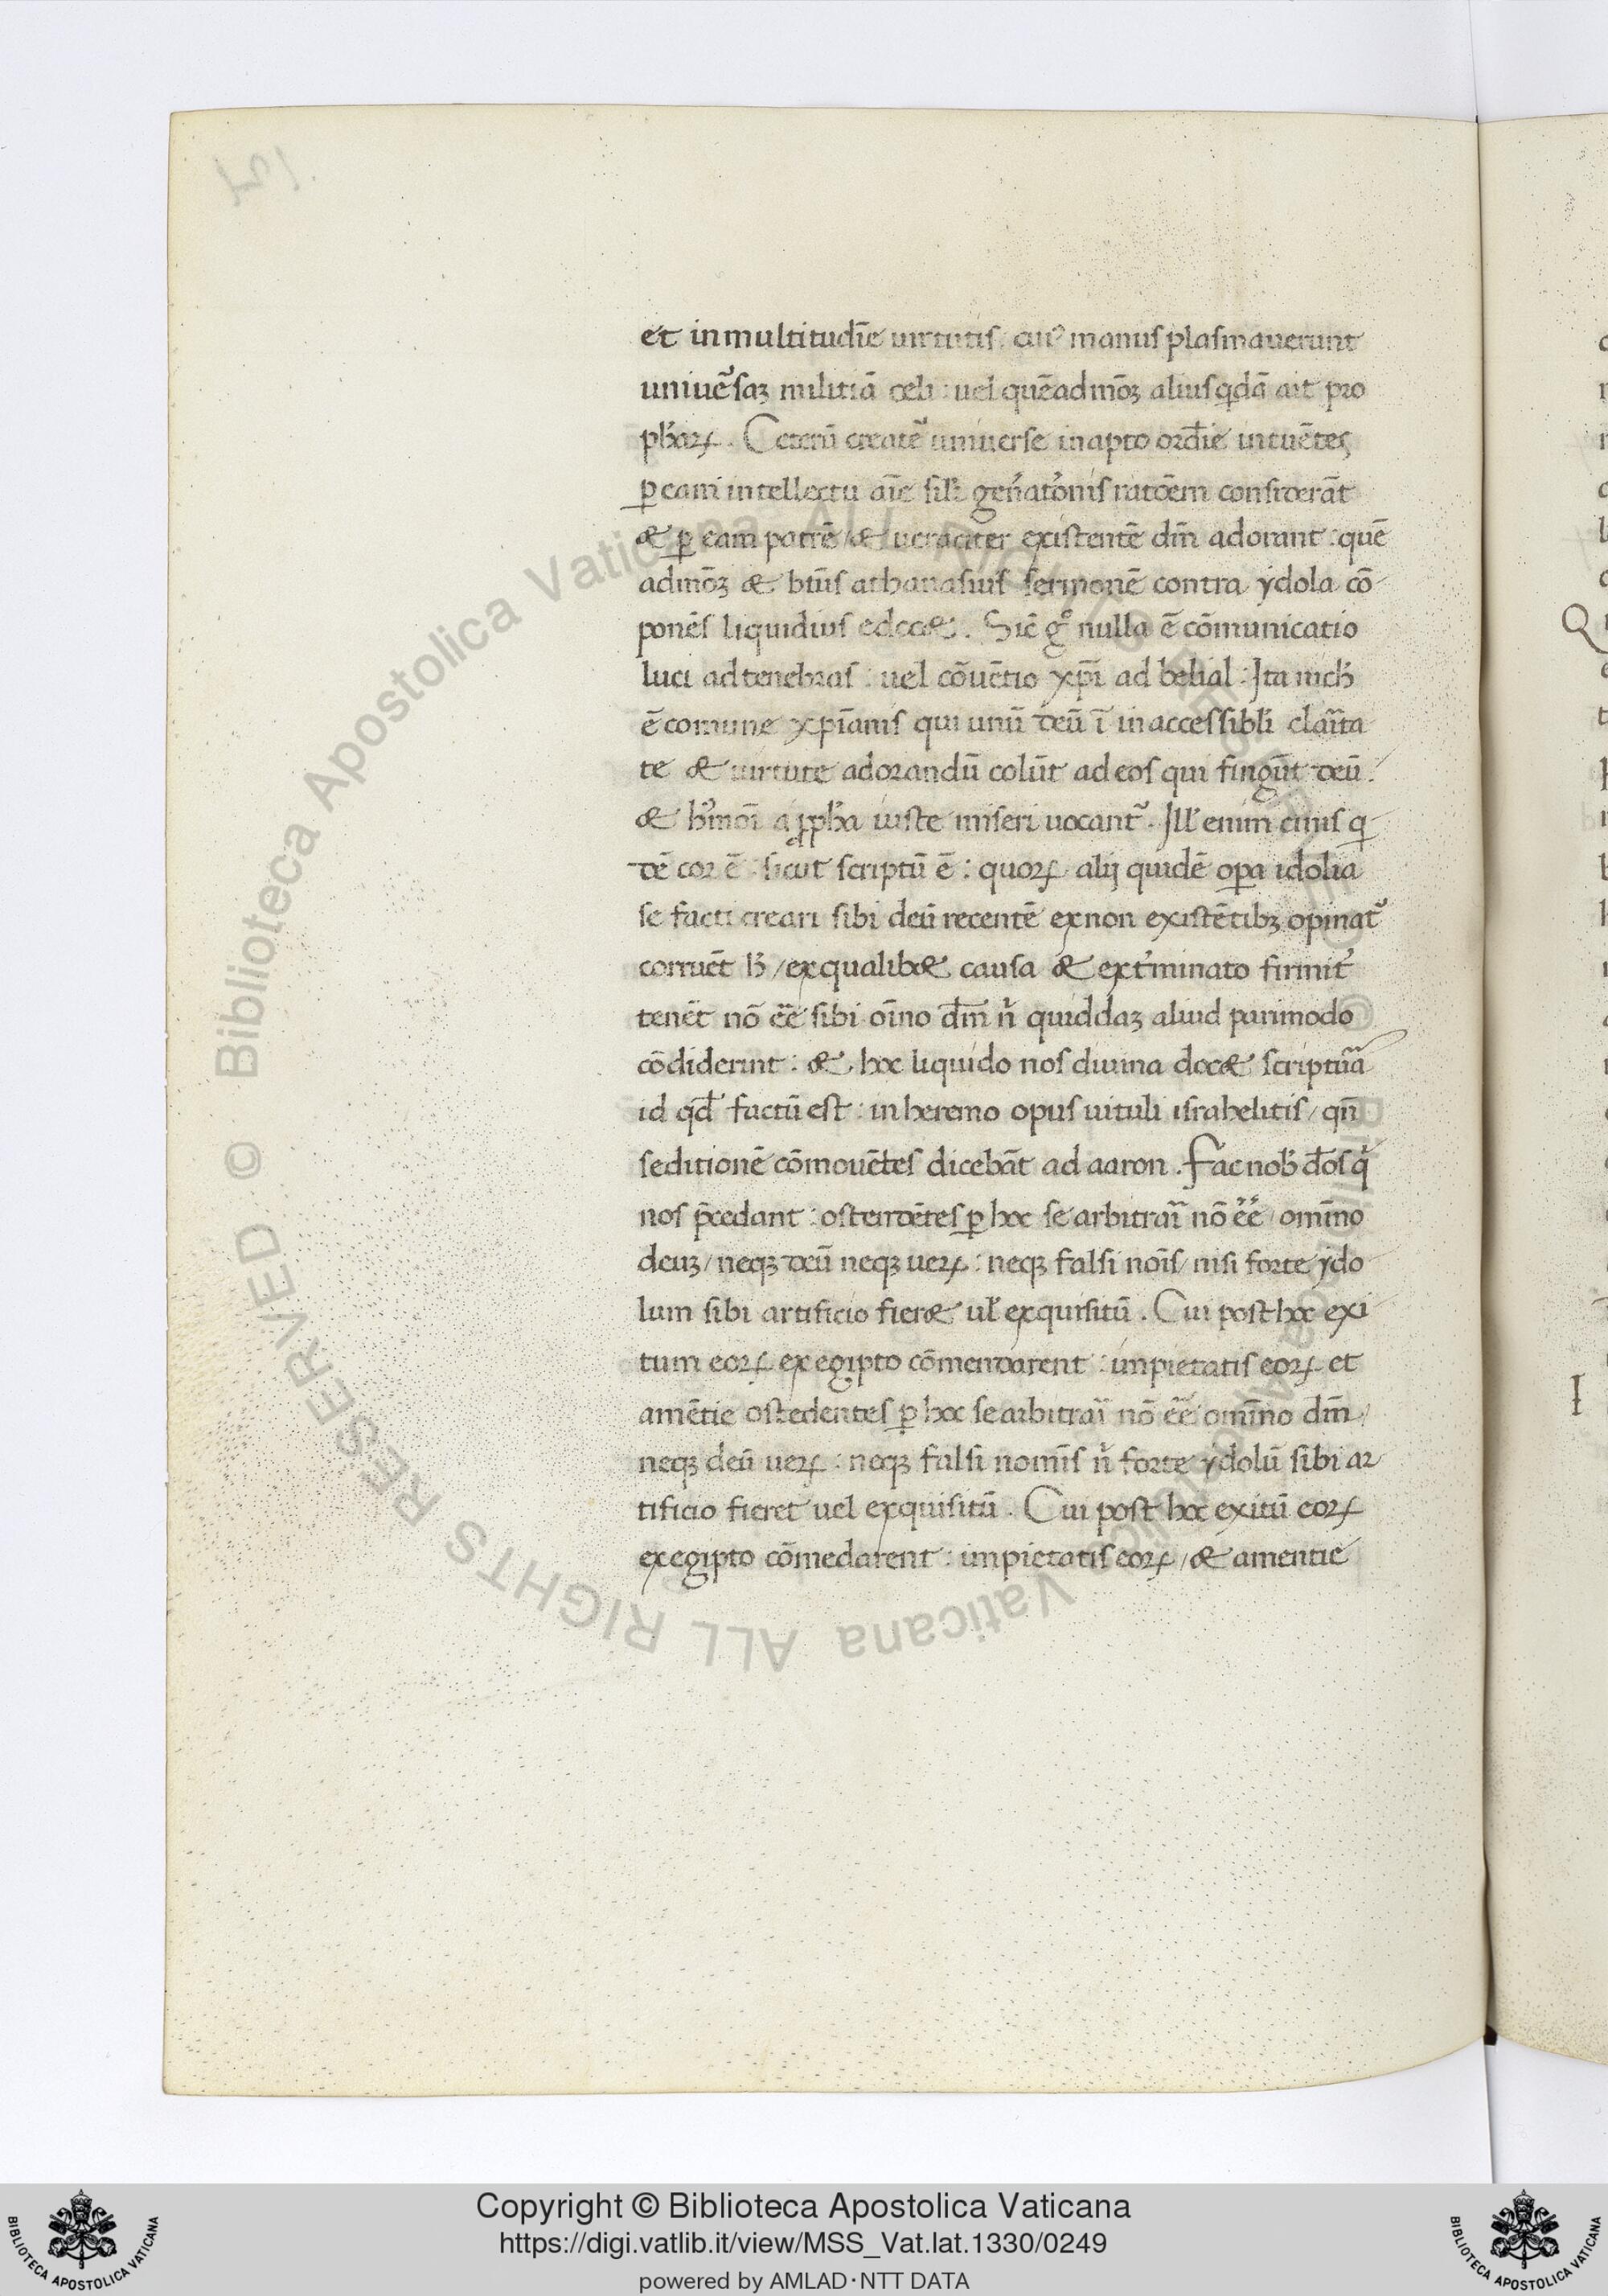 et in multitudīe uirtutis. cui᷒ manus plasmauerunt
uniuẽsaꝫ militiā celi : uel quēadmōꝫ alius qͥdā ait pro
pħaꝝ. Ceterū creatẽ uniuerse in apto ordīe intuētes
ꝑ eam intellectu aīe sibi geñatõnis ratōem considerāt
& ꝑ eam patrē / & ueraciter existentē dm̄ adorant : quē
admōꝫ & btūs athanasius sermonē contra ydola cō
ponēs liquidius edoc&. Sic̄ gͦ nulla ē cōmunicatio
luci ad tenebras : uel cōuētio xp̄i ad belial : Ita nichł
ē comune xp̄ianis qui unū deū ī inaccessibli clar̃ita
te & uirtute adorandū colūt ad eos qui fingūt deū.
& hm̃oī a ꝓpħa iuste miseri uocant᷑. Ill' enim cinis q
dē cor ē : sicut scriptū ē : quoꝝ alij quidē oꝑa idolia
se facti creari sibi deū recentē ex non existētibꝫ opinat᷑
corruēt ß / ex qualib& causa & ext̃minato firmit̃
tenēt nō ēē sibi oīno dm̄ n̍ quiddaꝫ aliud parimodo
cōdiderint : & hoc liquido nos diuina doc& script̃ua
id qd̄ factū est : in heremo opus uituli israhelitis / qn̄
seditionē cōmouētes dicebāt ad aaron. Fac nob̄ dōs qͥ
nos p̄cedant : ostendētes ꝑ hoc se arbitrarī nō ēē / omīno
deuꝫ / neqꝫ deū neqꝫ ueꝝ : neqꝫ falsi noīs / nisi forte ydo
lum sibi artificio fier& ul' exquisitū. Cui post hoc exi
tum eoꝝ ex egipto cōmendarent : impietatis eoꝝ et
amētie ostedentes ꝑ hoc se arbitrarī nō ēē omīno dm̄ /
neqꝫ deū ueꝝ : neqꝫ falsi nomīs n̍ forte ydolū sibi ar
tificio fieret uel exquisitū. Cui post hoc exitū eoꝝ
ex egipto cōmedarent : impietatis eoꝝ / & amentie
Copyright © Biblioteca Apostolica Vaticana
https://digi.vatlib.it/view/MSS_Vat.lat.1330/0249
powered by AMLAD·NTT DATA